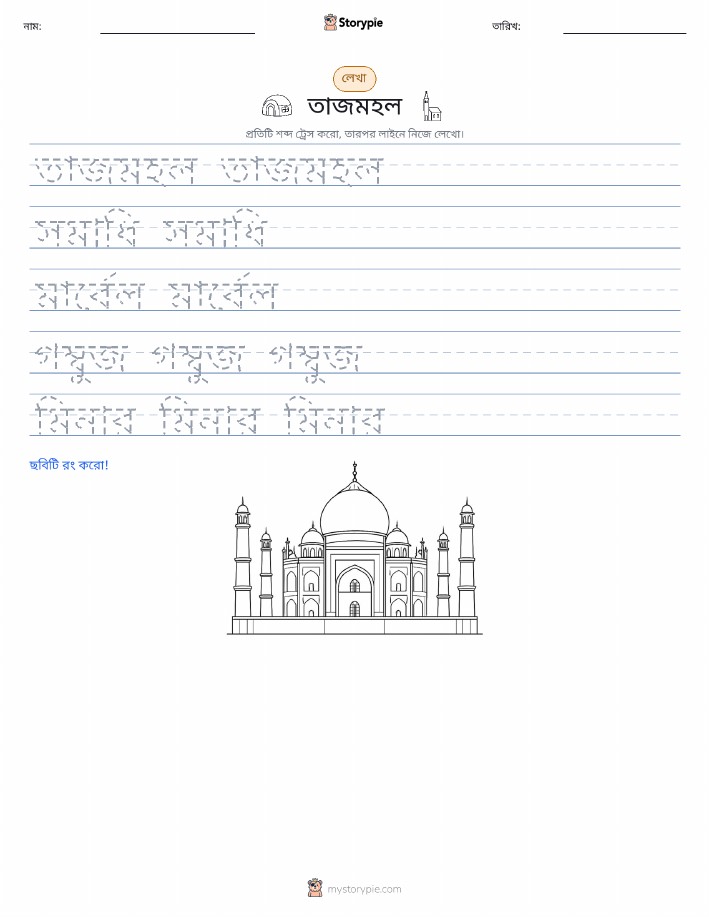 নাম:
Storypie
তারিখ:
লেখা
তাজমহল
প্রতিটি শব্দ ট্রেস করো, তারপর লাইনে নিজে লেখো।
তাজমহল তাজমহল
সমাধি সমাধি
মার্বেল মার্বেল
গম্বুজ গম্বুজ গম্বুজ
মিনার মিনার মিনার
ছবিটি রং করো!
mystorypie.com